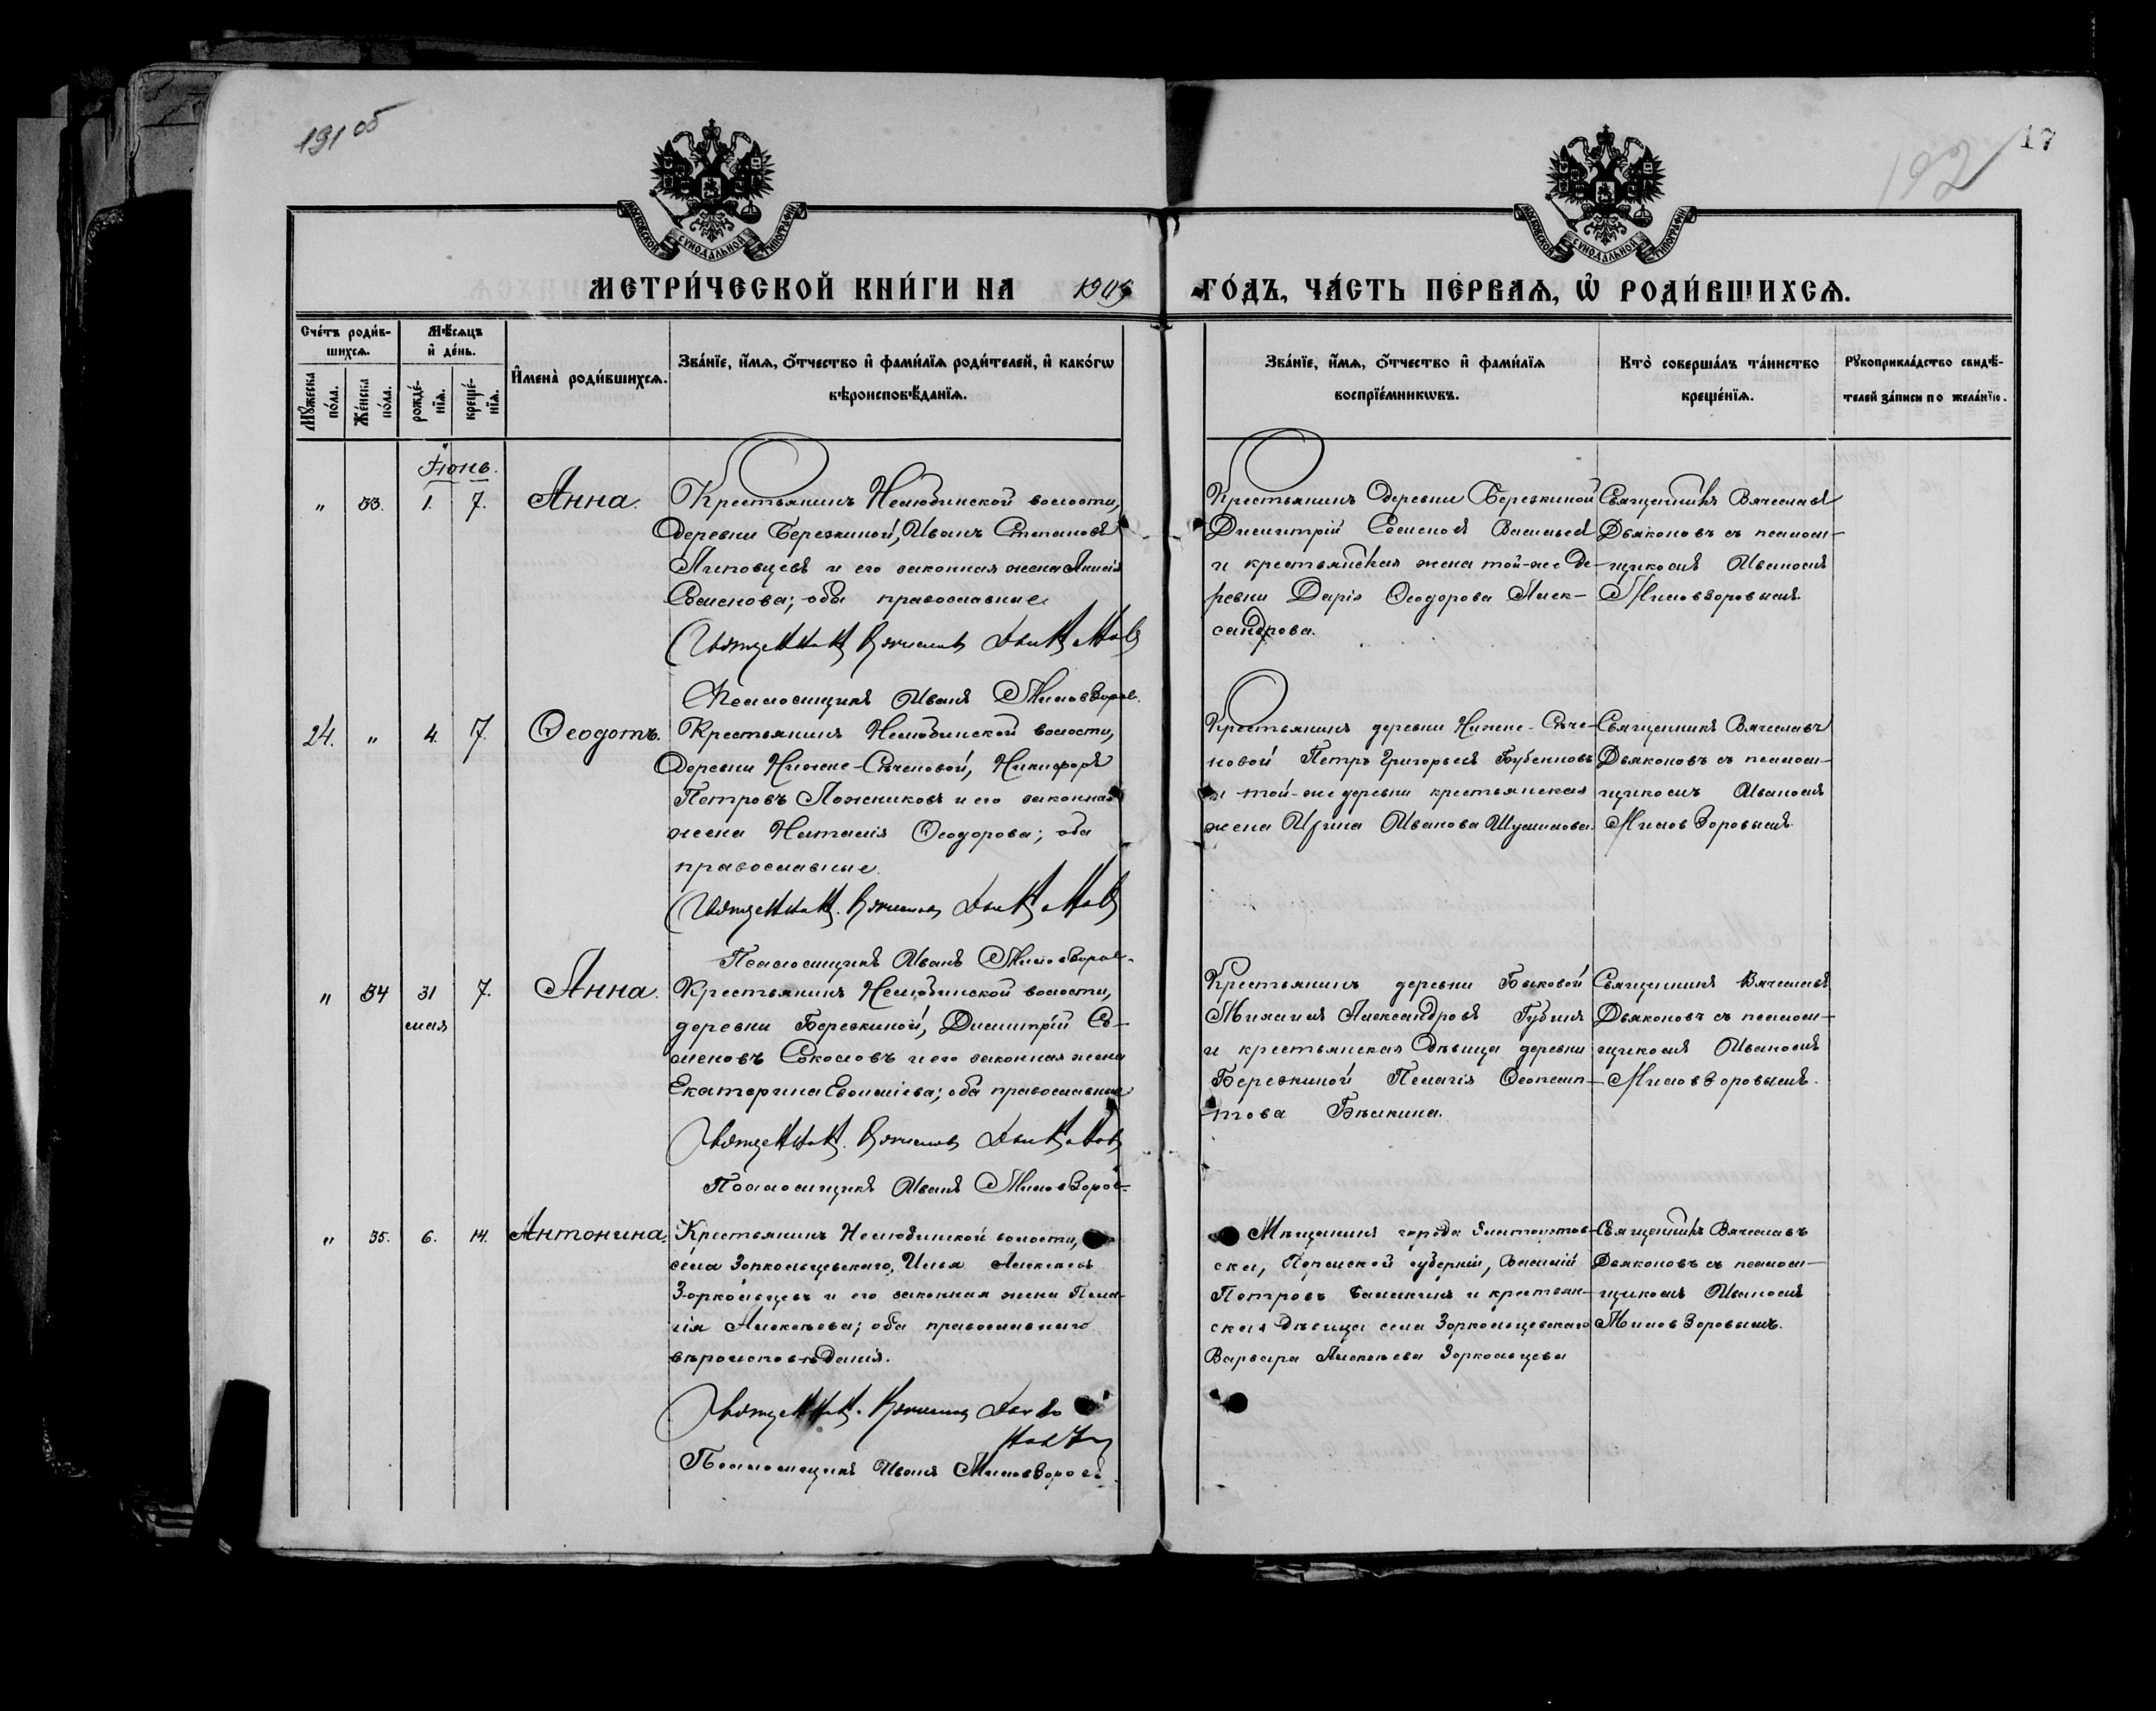 191 об
192
17
МОСКОВСКОЙ СУНОДАЛЬНОЙ ТИПОГРАФІИ
МОСКОВСКОЙ СУНОДАЛЬНОЙ ТИПОГРАФІИ
МЕТРИ́ЧЕСКОЙ КНИ́ГИ НА
ГО́ДЪ, ЧА́СТЬ ПЕ́РВАѦ, Ѡ҆ РОДИ́ВШИХСѦ.
Сче́тъ роди́в-
шихсѧ.
Мѣ́сѧцъ
и҆ де́нь.
Мꙋ́жеска по́ла.
Же́нска по́ла.
рожде́-
нїѧ.
креще́-
нїѧ.
И҆мена̀ роди́вшихсѧ.
Зва́нїе, и҆́мѧ, ѻ҆́тчество и҆ фами́лїѧ роди́телей, и҆ како́гѡ
вѣроисповѣ́данїѧ.
Зва́нїе, и҆́мѧ, ѻ҆́тчество и҆ фами́лїѧ
воспрїе́мникѡвъ.
Кто̀ соверша́лъ та́инство
креще́нїѧ.
Рꙋкоприкла́дство свидѣ́-
телей за́писи по жела́нїю.
Іюнь.
" 33. 1. 7. Анна.
Крестьянинъ Нелюбинской волости,
деревни Березкиной, Иванъ Степановъ
Липовцевъ и его законная жена Анисія
Семенова; оба православные
Священникъ Вячеславъ Дьяконовъ
Псаломщикъ Иванъ Миловзоровъ.
Крестьянинъ деревни Березкиной
Димитрій Семеновъ Васильевъ
и крестьянская жена той-же де-
ревни Дарія Ѳеодорова Алек-
сандрова.
Священникъ Вячеславъ
Дьяконовъ съ псалом-
щикомъ Иваномъ
Миловзоровымъ.
24. " 4. 7. Ѳеодотъ.
Крестьянинъ Нелюбинской волости,
деревни Нижне-Сѣченовой, Никифоръ
Петровъ Ложниковъ и его законная
жена Наталія Ѳеодорова; оба
православные.
Священникъ Вячеславъ Дьяконовъ
Псаломщикъ Иванъ Миловзоровъ.
Крестьянинъ деревни Нижне-Сѣче-
новой Петръ Григорьевъ Бубенновъ
и той-же деревни крестьянская
жена Ирина Иванова Шумилова.
Священникъ Вячеславъ
Дьяконовъ съ псалом-
щикомъ Иваномъ
Миловзоровымъ.
" 34 31 мая 7. Анна.
Крестьянинъ Нелюбинской волости,
деревни Березкиной, Димитрій Се-
меновъ Соколовъ и его законная жена
Екатерина Евѳиміева; оба православные
Священникъ Вячеславъ Дьяконовъ
Псаломщикъ Иванъ Миловзоровъ.
Крестьянинъ деревни Быковой
Михаилъ Александровъ Губинъ
и крестьянская дѣвица деревни
Березкиной Пелагія Ѳеопемп-
това
Священникъ Вячеславъ
Дьяконовъ съ псалом-
щикомъ Иваномъ
Миловзоровымъ.
" 35. 6. 14. Антонина.
Крестьянинъ Нелюбинской волости,
села Зоркольцевскаго, Илья Алексѣевъ
Зоркольцевъ и его законная жена Пела-
гія Алексѣева; оба православнаго
вѣроисповѣданія.
Священникъ Вячеславъ Дьяко
новъ
Псаломщикъ Иванъ Миловзоровъ
Мѣщанинъ города
Пермской губерніи, Василій
Петровъ и крестьян-
ская дѣвица села Зоркольцевскаго
Варвара Алексѣева Зоркольцева
Священникъ Вячеславъ
Дьяконовъ съ псалом-
щикомъ Иваномъ
Миловзоровымъ.